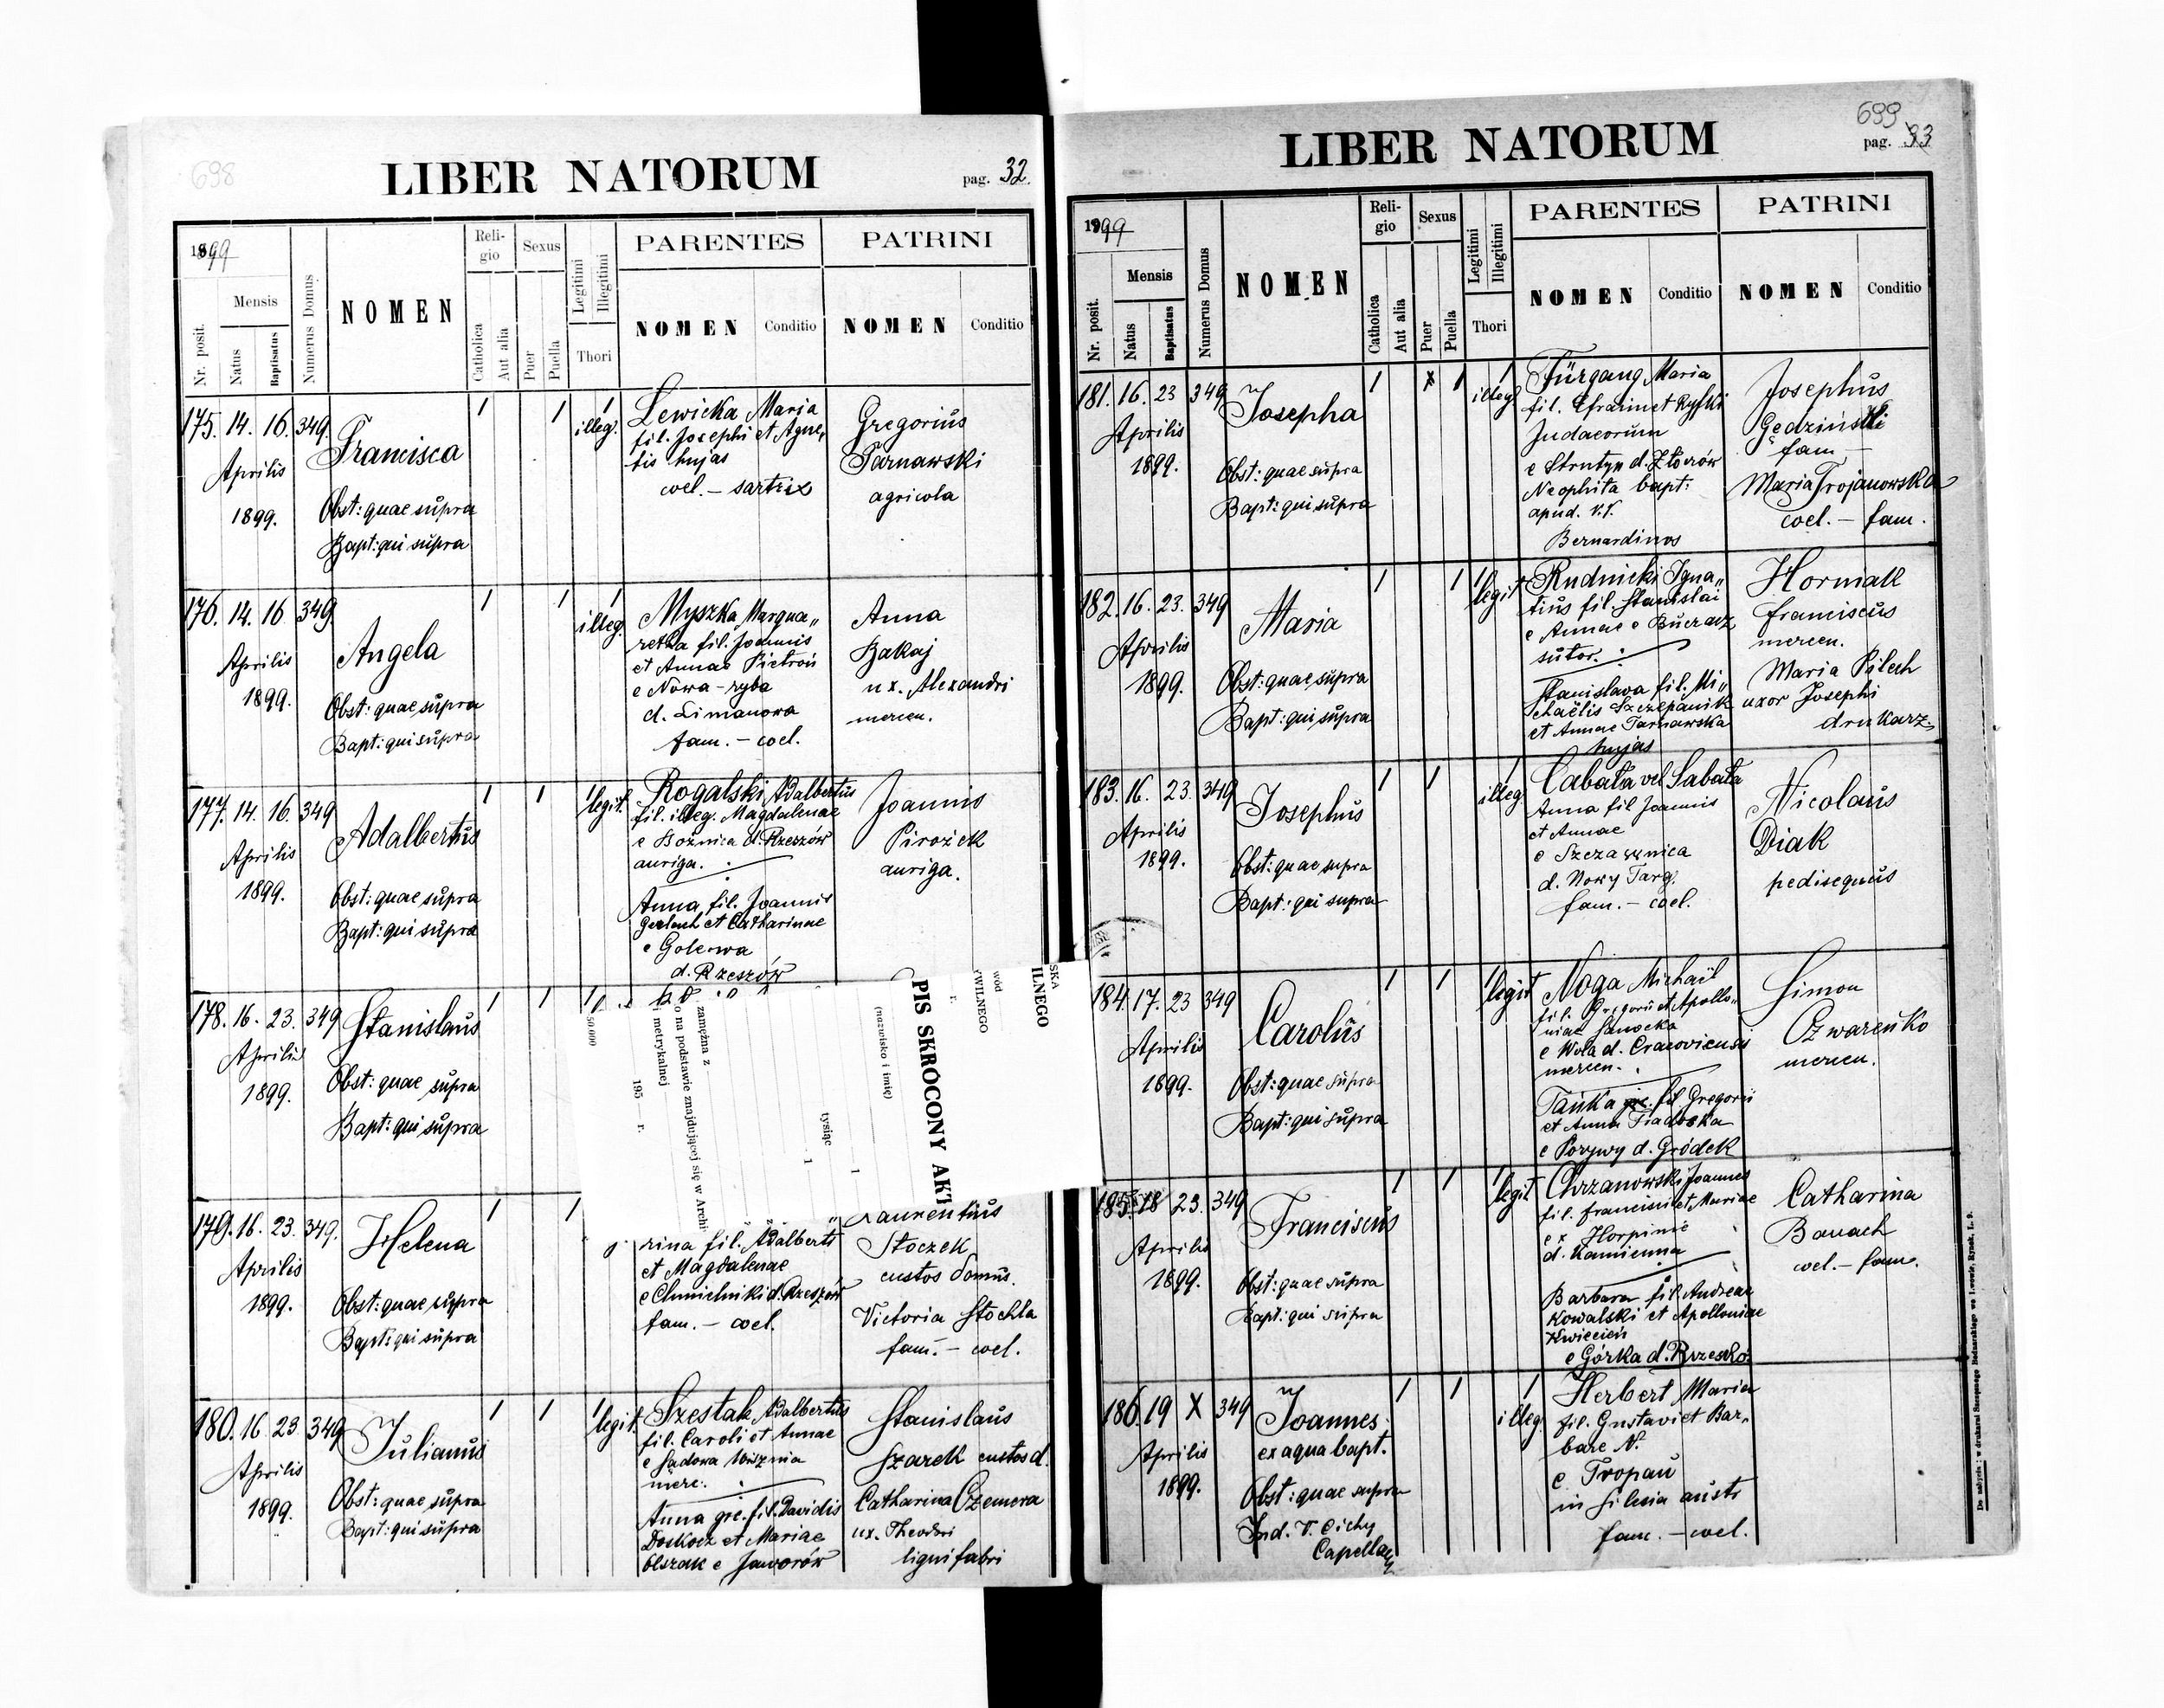 698
LIBER NATORUM
pag. 32.
1899
Mensis
Nr. posit.
Natus
Baptisatus
Numerus Domus
NOMEN
Reli-
gio
Catholica
Aut alia
Sexus
Puer
Puella
Legitimi
Illegitimi
Thori
PARENTES
NOMEN
Conditio
PATRINI
NOMEN
Conditio
175. 14. 16. 349.
Aprilis
1899.
Francisca
Obst: quae supra
Bapt: qui supra
1 1 1
illeg.
Lewicka Maria
fil. Josephi et Agne„
tis hujas
coel. – sartrix
Gregorius
Tarnawski
agricola
176. 14. 16 349.
Aprilis
1899.
Angela
Obst: quae supra
Bapt: qui supra
1 1 1
illeg.
Myszka Margua„
retha fil. Joannis
et Annae Pietroń
e Nowa-ryba
d. Limanowa
fam. – coel.
Anna
Bakaj
ux. Alexandri
mercen.
177. 14. 16. 349
Aprilis
1899.
Adalbertus
Obst: quae supra
Bapt: qui supra
1 1 1
legit.
Rogalski Adalbertus
fil. illeg. Magdalenae
e Boznica d. Rzeszów
auriga.
Anna fil. Joannis
Gerlach et Catharinae
e Golewa
d. Rzeszów
Joannis
Pirożek
auriga.
178. 16. 23. 349
Aprilis
1899.
Stanislaus
Obst: quae supra
Bapt: qui supra
1 1 1
50.000
i metrykalnej
195 r.
o na podstawie znajdującej się w Archi
zamężna z
tysiąc
1
(nazwisko i imię)
1
PIS SKRÓCONY AKT
r.
YWILNEGO
wód
ILNEGO
SKA
179. 16. 23. 349.
Aprilis
1899.
Helena
Obst: quae supra
Bapt: qui supra
1 1
rina fil. Adalberti
et Magdalenae
e Chmielniki d. Rzeszów
fam. – coel.
Laurentius
Stoczek
custos domus.
Victoria Stochla
fam. – coel.
180. 16. 23. 349
Aprilis
1899.
Julianus
Obst: quae supra
Bapt: qui supra
1 1 1
legit.
Szestak Adalbertus
fil. Caroli et Annae
e Sadowa Wisznia
merc.
Anna grc. fil. Davidis
Doskocz et Mariae
Olszak e Jaworów
Stanislaus
Szarek custos d.
Catharina Czemera
ux. Theodori
lignifabri
699
LIBER NATORUM
pag. 33
1899
Mensis
Nr. posit.
Natus
Baptisatus
Numerus Domus
NOMEN
Reli-
gio
Catholica
Aut alia
Sexus
Puer
Puella
Legitimi
Illegitimi
Thori
PARENTES
NOMEN
Conditio
PATRINI
NOMEN
Conditio
181. 16. 23 349
Aprilis
1899.
Josepha
Obst: quae supra
Bapt: qui supra
1 x 1 1
illeg.
Fürgang Maria
fil. Efraim et Ryfki
Judaeorum
e Strutyn d. Złoczów
Neophita bapt:
apud. V.V.
Bernardinos
Josephus
Gędziński
fam –
Maria Trojanowska
coel. – fam.
182. 16. 23. 349
Aprilis
1899.
Maria
Obst: quae supra
Bapt: qui supra
1 1 1
legit
Rudnicki Igna„
tius fil. Stanislai
e Annae e Buczacz
sutor.
Stanislava fil. Mi„
chaëlis Szczepanik
et Annae Tarnawska
hujas
Horniak
Franciscus
mercen.
Maria Pilech
uxor Josephi
drukarz.
183. 16. 23. 349
Aprilis
1899.
Josephus
Obst: quae supra
Bapt: qui supra
1 1 1
illeg.
Cabała vel Sabała
Anna fil Joannis
et Annae
e Szczawnica
d. Nowy Targ.
fam. – coel.
Nicolaus
Diak
pedisequus
184. 17. 23 349
Aprilis
1899.
Carolus
Obst: quae supra
Bapt: qui supra
1 1 1
legit
Noga Michaïl
fil. Gregorii et Apollo„
niae Sanocka
e Wola d. Cracoviensis
mercen.
Tańka grc. fil Gregorii
et Anna
e d. Gródek
Simon
Czwareńko
mercen.
185. 18 23. 349
Aprilis
1899.
Franciscus
Obst: quae supra
Bapt: qui supra
1 1 1
legit
Chrzanowski Joannes
fil. francisci et Mariae
ex Horpinie
d. Kamienna
Barbara fil. Andreae
Kowalski et Apolloniae
Kwiecień
e Górka d. Brzesko
Catharina
Banach
coel. – fam.
186. 19 X 349
Aprilis
1899.
Joannes
ex aqua bapt.
Obst: quae supra
Ind. V. Cichy
Capellan
1 1 1
illeg.
Herbert Maria
fil. Gustavi et Bar„
bare N.
e Tropau
in Silesia austr
fam. – coel.